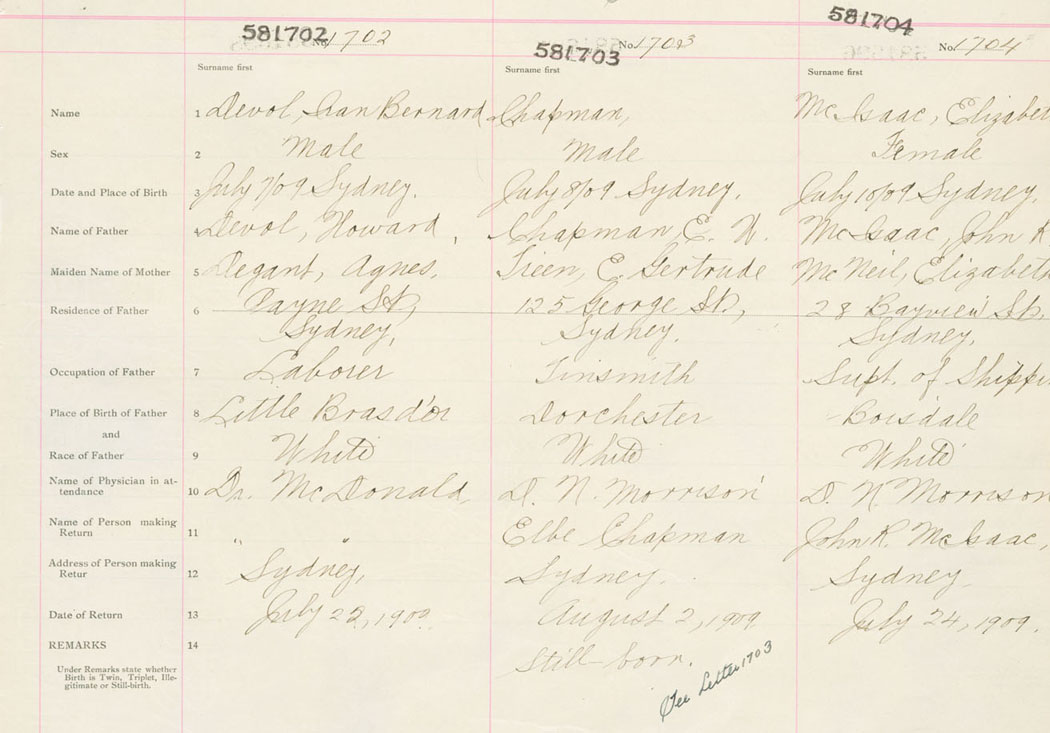 581702 No. 1702
581703 No. 1703
581704 No. 1704
Surname first
Surname first
Surname first
Name 1 Devol, Bernard Chapman, Mc Isaac, Elizabet
Sex 2 Male Male Female
Date and Place of Birth 3 July 7/09 Sydney. July 8/09 Sydney. July 18/09 Sydney.
Name of Father 4 Devol, Howard, Chapman, E. W. Mc Isaac, John R
Maiden Name of Mother 5 Degant, Agnes. E. Gertrude Mc Neil, Elizabeth
Residence of Father 6 Payne St, 125 George St, 28 Bayview St,
Sydney, Sydney. Sydney.
Occupation of Father 7 Laborer Tinsmith Supt. of Shippi
Place of Birth of Father 8 Little Brasd'or Dorchester Boisdale
and
Race of Father 9 White White White
Name of Physician in at-
tendance 10 Dr. McDonald, D. N. Morrison D. N. Morrison
Name of Person making
Return 11 " " Elbe Chapman John R. McIsaac,
Address of Person making
Retur 12 Sydney, Sydney. Sydney
Date of Return 13 July 22, 1909. August 2, 1909 July 24, 1909.
REMARKS 14
Still-born.
Under Remarks state whether
Birth is Twin, Triplet, Ille-
gitimate or Still-birth.
See Letter 1703